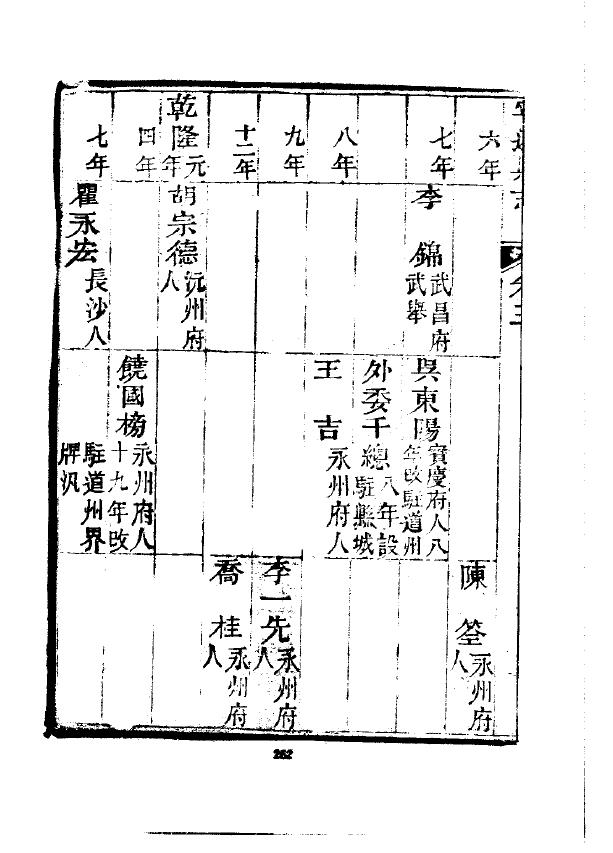 六年
陳筌永州府人
七年
李錦武昌府武舉
吳東陽寳慶府人八年改駐道州
外委千總八年設駐縣城
八年
王吉永州府人
九年
李一先永州府人
十二年
喬桂永州府人
乾隆元年
胡宗德沅州府人
四年
饒國榜永州府人十九年改駐道州界牌汛
七年
瞿永宏長沙人
262